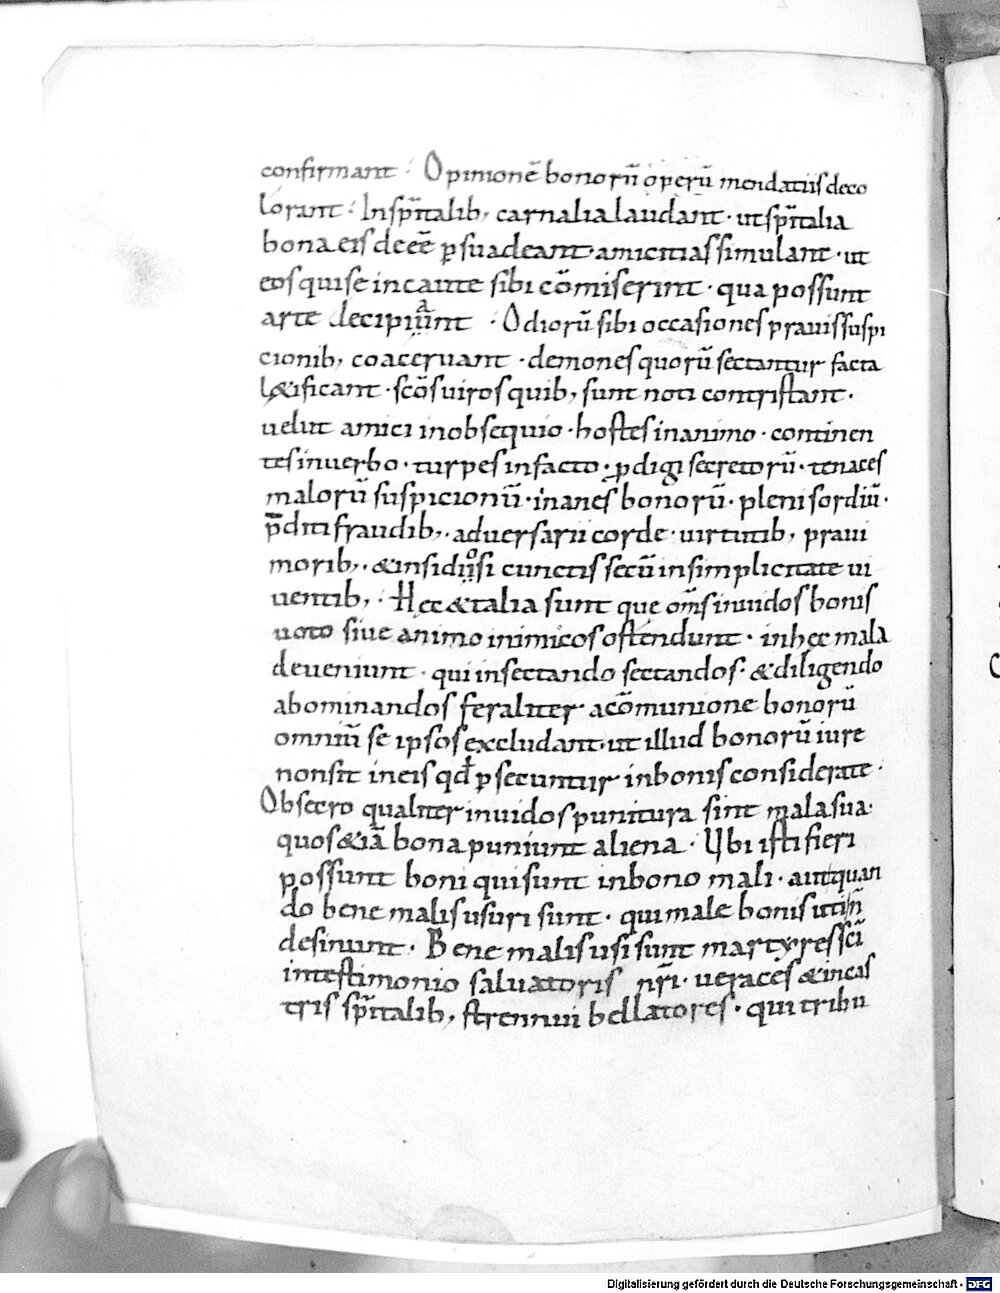 confirmant· Opinionē bonorū operū mendatiis deco
lorant· In sp̄italib; carnalia laudant· ut sp̄italia
bona eis deeē p̱suadeant· amicitias simulant· ut
eos qui se incaute sibi cōmiserint· qua possunt
arte decipiant· Odiorū sibi occasiones prauis suspi
cionib; coaceruant· demones quorū sectantur facta
l&ificant· scōs uiros quib; sunt noti contristant·
uelut amici in obsequio· hostes in animo· continen
tes in uerbo· turpes in facto· p̱digi secretorū· tenaces
malorū suspicionū· inanes bonorū· pleni sordiū·
p̄diti fraudib;· aduersarii corde· uirtutib; praui
morib;· & insidiosi cunctis secū in simplicitate ui
uentib;· Hec & talia sunt que om̄s inuidos bonis
uoto siue animo inimicos ostendunt· in hec mala
deueniunt· qui insectando sectandos· & diligendo
abominandos feraliter a cōmunione bonorū
omniū se ipsos excludant· ut illud bonorū iure
non sit in eis qđ p̱secuntur in bonis considerate·
Obsecro qualiter inuidos punitura sint mala sua·
quos &iā bona puniunt aliena· Ubi isti fieri
possunt boni qui sunt in bono mali· aut quan
do bene malis usuri sunt· qui male bonis uti n̄
desinunt· Bene malis usi sunt martyres sc̄i
in testimonio saluatoris nr̄i· ueraces & in cas
tris sp̄italib; strennui bellatores· qui tribu
Digitalisierung gefördert durch die Deutsche Forschungsgemeinschaft - DFG